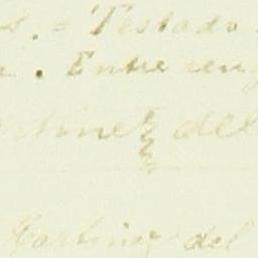 s. = Testado
. Entre reng
rtinez del
Martinez del